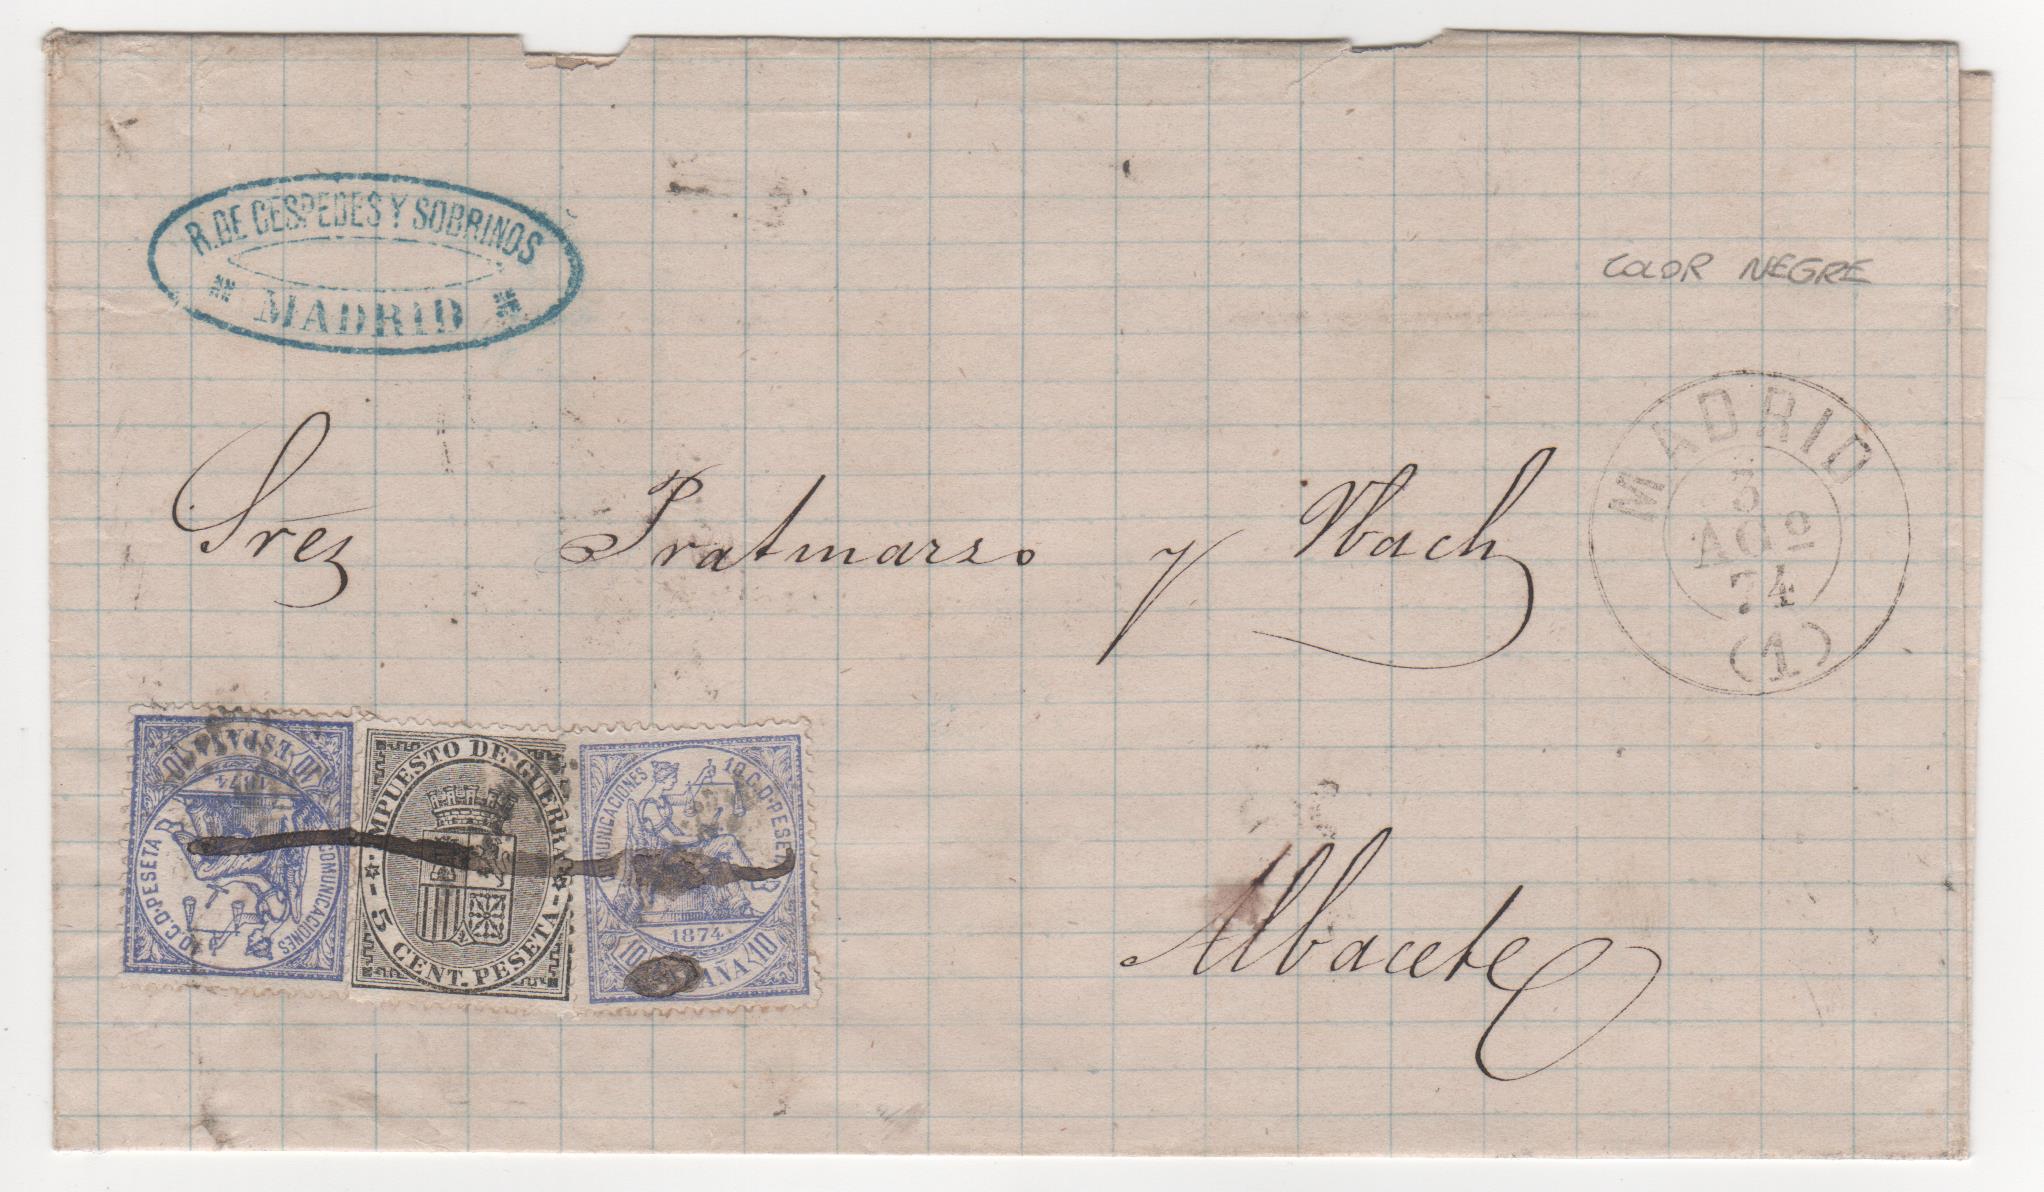 R. DE CESPEDES Y SOBRINOS
MADRID
COLOR NEGRE
MADRID
3
AGO
74
(1)
Sres Pratmarso y Ybach
10 ESPAÑA 10
1874
COMUNICACIONES
10 C. D. PESETA
IMPUESTO DE GUERRA
5 CENT. PESETA
COMUNICACIONES
10 C. D. PESETA
1874
10 ESPAÑA 10
Albacete